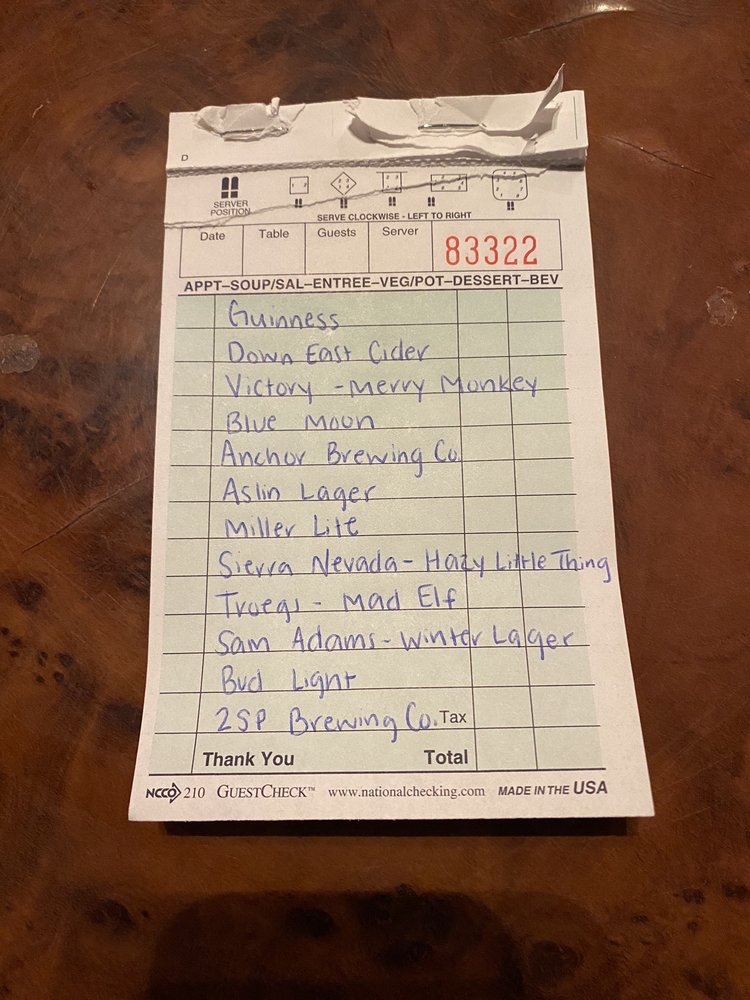 D
SERVER
POSITION
SERVE CLOCKWISE - LEFT TO RIGHT
Date Table Guests Server 83322
APPT–SOUP/SAL–ENTREE–VEG/POT–DESSERT–BEV
Guinness
Down East Cider
Victory - Merry Monkey
Blue Moon
Anchor Brewing Co.
Aslin Lager
Miller Lite
Sierra Nevada - Hazy Little Thing
Troegs - Mad Elf
Sam Adams - Winter Lager
Bud Light
2SP Brewing Co. Tax
Thank You Total
NCCO 210 GUESTCHECK™ www.nationalchecking.com MADE IN THE USA